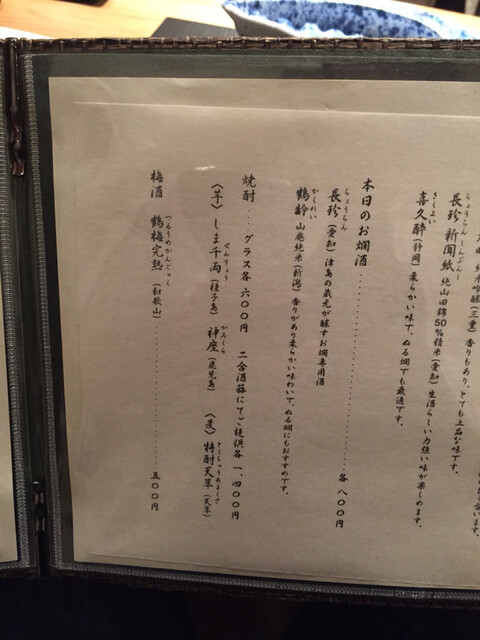 純米吟醸(三重)香りもあり、とても上品な味です。
長珍 新聞紙 純山田錦50%精米(愛知)生酒らしい力強い味が楽しめます。
きくよい
喜久醉(静岡)柔らかい味で、ぬる燗でも最適です。
本日のお燗酒 各八〇〇円
長珍(愛知)津島の蔵元が醸すお燗専用酒
かくれい
鶴齢 山廃純米(新潟)香りがあり柔らかい味わいで、ぬる燗にもおすすめです。
焼酎 グラス各六〇〇円 二合酒器にてご提供各一、四〇〇円
せんりょう かんくら とくちゅうあまくさ
〈芋〉しま千両(種子島)神座(鹿児島)〈麦〉特酎天草(天草)
つるうめかんじゅく
梅酒 鶴梅完熟(和歌山) 五〇〇円